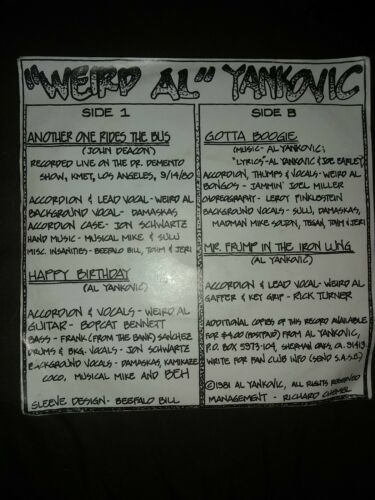 "WEIRD AL" YANKOVIC
SIDE 1
ANOTHER ONE RIDES THE BUS
(JOHN DEACON)
RECORDED LIVE ON THE DR. DEMENTO
SHOW, KMET, LOS ANGELES, 9/14/80
ACCORDION & LEAD VOCAL - WEIRD AL
BACKGROUND VOCAL - DAMASKAS
ACCORDION CASE - JON SCHWARTZ
HAND MUSIC - MUSICAL MIKE & SULU
MISC. INSANITIES - BEEFALO BILL, TOHM & JERI
HAPPY BIRTHDAY
(AL YANKOVIC)
ACCORDION & VOCALS - WEIRD AL
GUITAR - BOPCAT BENNETT
BASS - FRANK (FROM THE BANK) SANCHEZ
DRUMS & BKG. VOCALS - JON SCHWARTZ
BACKGROUND VOCALS - DAMASKAS, KAMIKAZE
COCO, MUSICAL MIKE AND BEH
SLEEVE DESIGN - BEEFALO BILL
SIDE B
GOTTA BOOGIE
(MUSIC - AL YANKOVIC;
"LYRICS" - AL YANKOVIC & JOE EARLEY)
ACCORDION, THUMPS & VOCALS - WEIRD AL
BONGOS - JAMMIN' JOEL MILLER
CHOREOGRAPHY - LEROY FINKLESTEIN
BACKGROUND VOCALS - SULU, DAMASKAS,
MADMAN MIKE SOLTON, TEGAN, TOHM & JERI
MR. FRUMP IN THE IRON LUNG
(AL YANKOVIC)
ACCORDION & LEAD VOCAL - WEIRD AL
GAFFER & KEY GRIP - RICK TURNER
ADDITIONAL COPIES OF THIS RECORD AVAILABLE
FOR $4.00 (POSTPAID) FROM AL YANKOVIC,
P.O. BOX 5973-104, SHERMAN OAKS, CA. 91413
WRITE FOR FAN CLUB INFO (SEND S.A.S.E.)
©1981 AL YANKOVIC, ALL RIGHTS RESERVED
MANAGEMENT - RICHARD